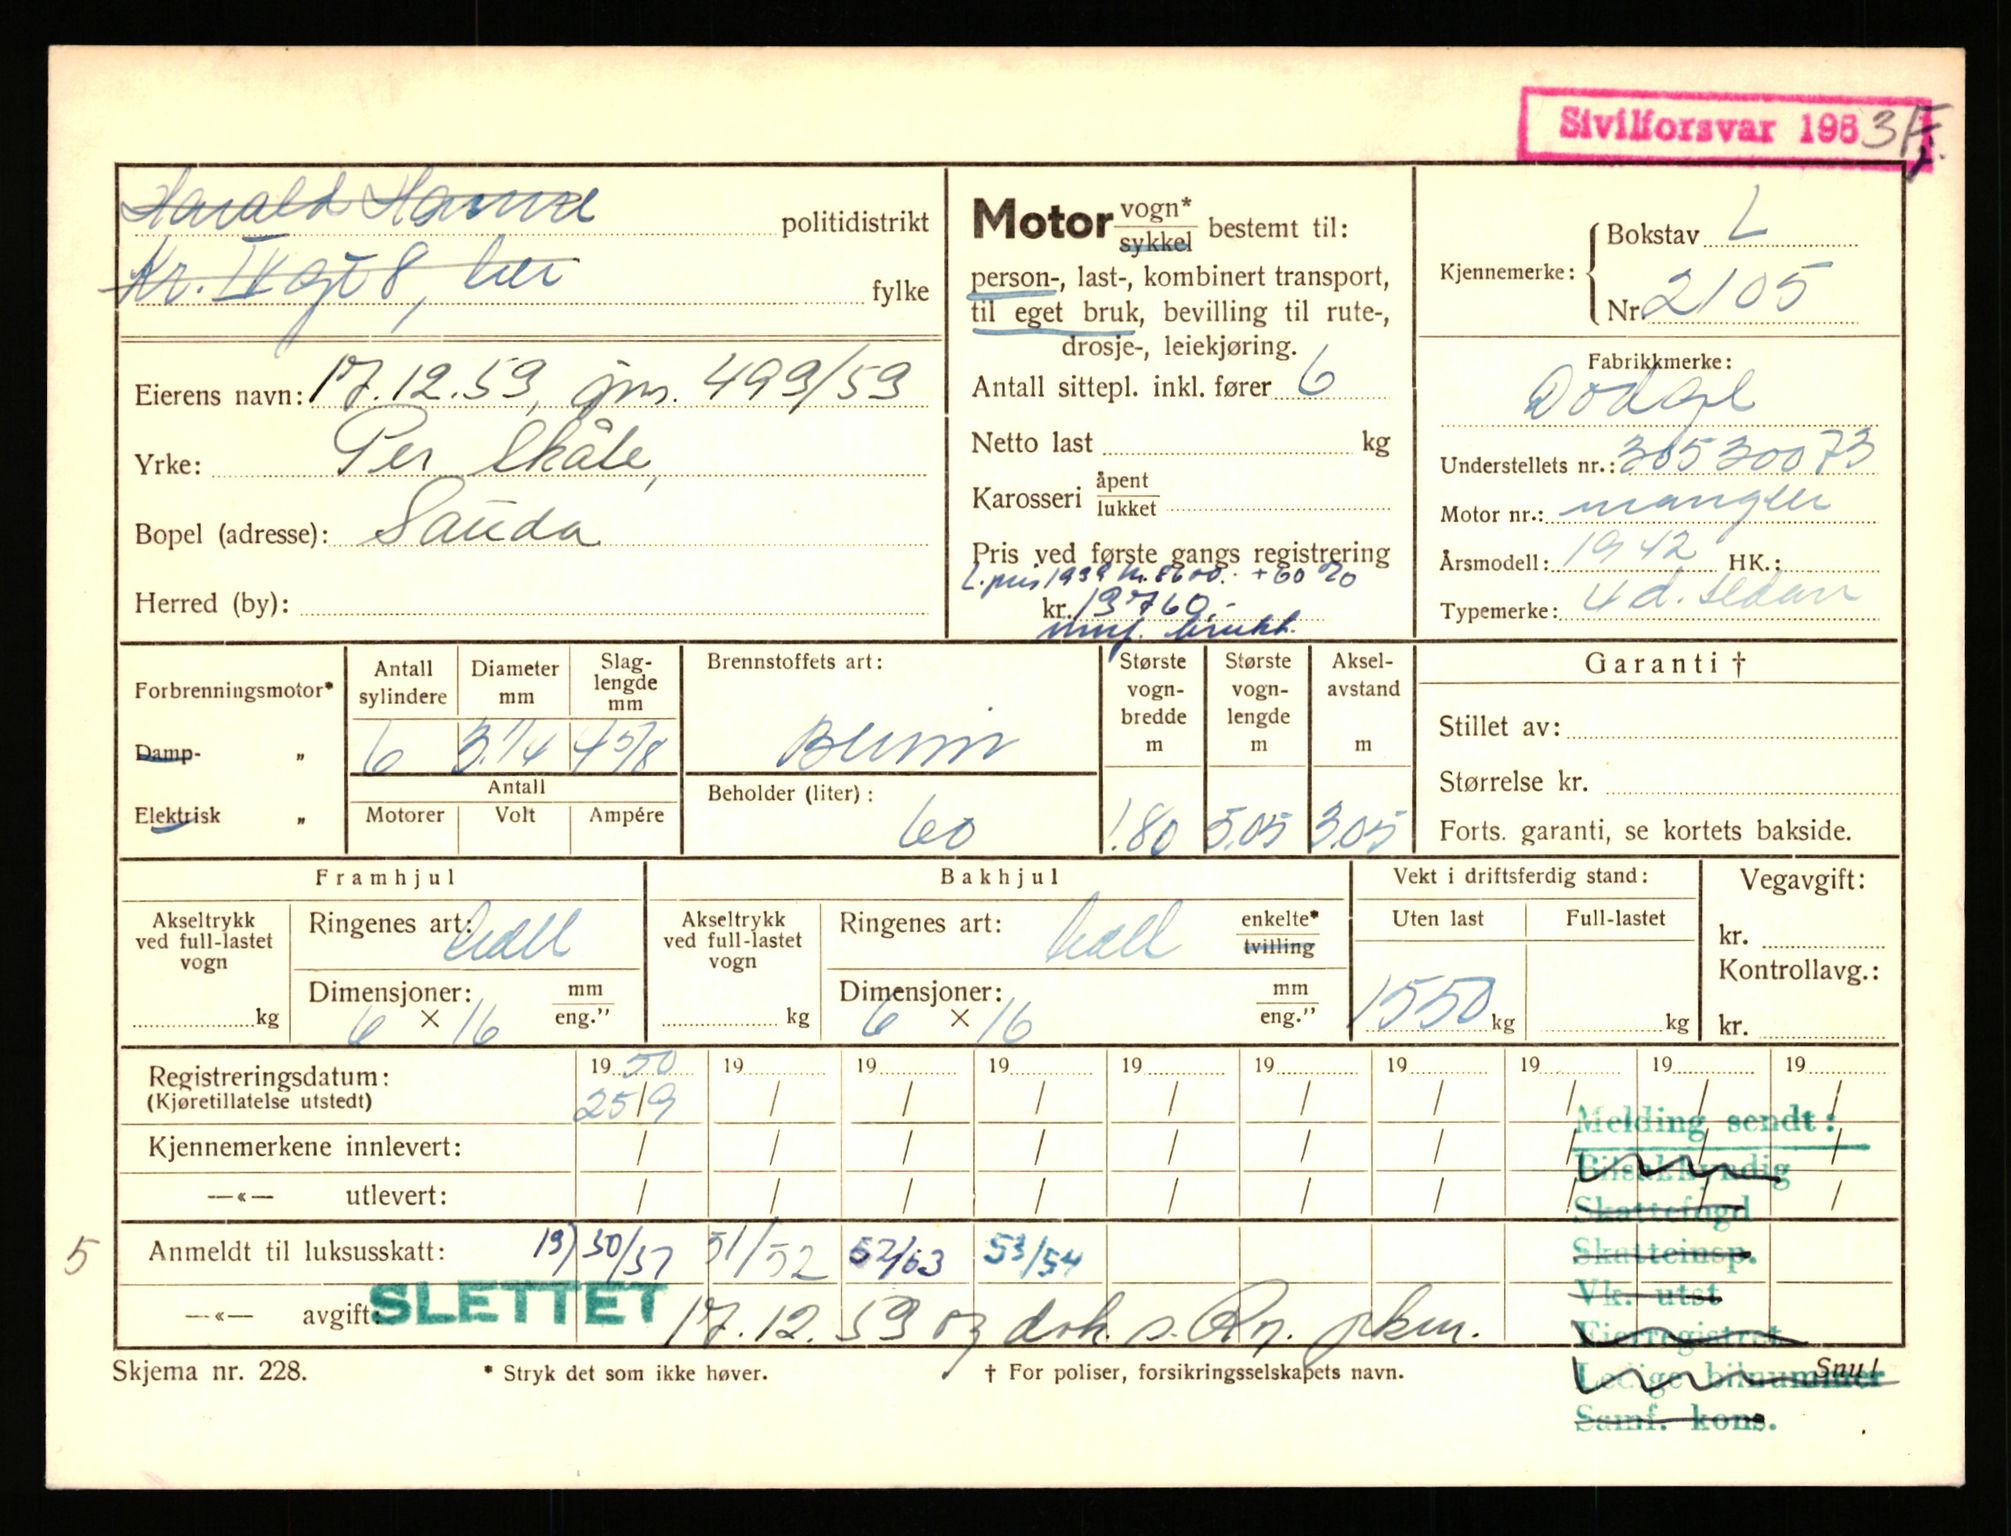 Sivilforsvar 1953
Harald
politidistrikt
Kr. IV gt 8, her
fylke
Eierens navn: 17.12.59, jnr. 499/59
Yrke: Per Skåle,
Bopel (adresse): Sauda
Herred (by):
Motor vogn* sykkel bestemt til:
person-, last-, kombinert transport,
til eget bruk, bevilling til rute-,
drosje-, leiekjøring.
Antall sittepl. inkl. fører 6
Netto last kg
Karosseri åpent lukket
Pris ved første gangs registrering
L.pris 1939 kr. 8600.- +60%
kr. 13760.-
brukt.
Kjennemerke: Bokstav L
Nr. 2105
Fabrikkmerke:
Dodge
Understellets nr.: 30530073
Motor nr.: mangler
Årsmodell: 1942 HK.:
Typemerke: 4 d. sedan
Forbrenningsmotor*
Damp- „
Elektrisk „
Antall sylindere
Diameter mm
Slaglengde mm
6 3.1/4 4 5/8
Antall
Motorer Volt Ampére
Brennstoffets art:
Bensin
Beholder (liter):
60
Største vogn-bredde m
1.80
Største vogn-lengde m
5.05
Aksel-avstand m
3.05
Garanti †
Stillet av:
Størrelse kr.
Forts. garanti, se kortets bakside.
Framhjul
Akseltrykk ved full-lastet vogn
kg
Ringenes art:
Dimensjoner: mm eng."
6 × 16
Bakhjul
Akseltrykk ved full-lastet vogn
kg
Ringenes art:
enkelte* tvilling
Dimensjoner: mm eng."
6 × 16
Vekt i driftsferdig stand:
Uten last Full-lastet
1550 kg kg
Vegavgift:
kr.
Kontrollavg.:
kr.
Registreringsdatum: 1950 19 19 19 19 19 19 19 19 19
(Kjøretillatelse utstedt) 25/9 / / / / / / / / /
Kjennemerkene innlevert: / / / / / / / / / /
—«— utlevert: / / / / / / / / / /
5 Anmeldt til luksusskatt: 19) 50/51 51/52 52/53 53/54
—«— avgift:
SLETTET
17.12.59 og dok. s. Rn. pkm.
Melding sendt:
Bilsakkyndig
Skattefogd
Skatteinsp.
Vk. utst
Eierregistret
Ledige bilnummer
Samf. kons.
Skjema nr. 228.
* Stryk det som ikke høver.
† For poliser, forsikringsselskapets navn.
Snu!